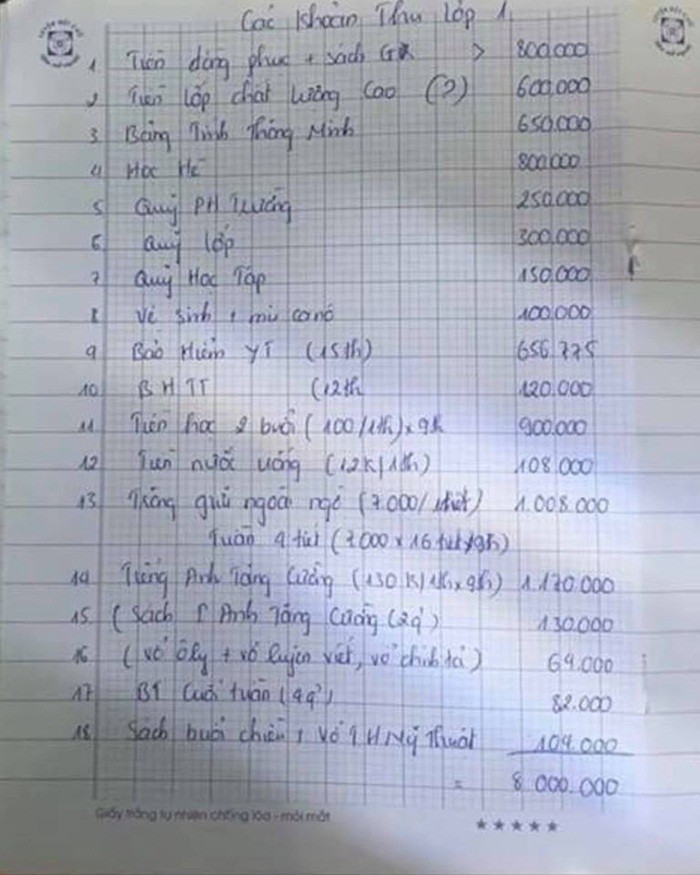 Các khoản Thu lớp 1
1 Tiền đồng phục + sách GK > 800.000
2 Tiền lớp chất lượng cao (?) 600.000
3 Bảng Tính Thông Minh 650.000
4 Học Hè 800.000
5 Quỹ PH Trường 250.000
6 Quỹ lớp 300.000
7 Quỹ Học Tập 150.000
8 Vệ sinh + 100.000
9 Bảo Hiểm YT (15th) 656.775
10 BHTT (12th 120.000
11 Tiền học 2 buổi (100/1th) x 9th 900.000
12 Tiền nước uống (12K/1th) 108.000
13 Trông giữ ngoài giờ (7.000/tiết) 1.008.000
Tuần 4 tiết (7000 x 16 tiết/9th)
14 Tiếng Anh Tăng Cường (130K/1th x 9th) 1.170.000
15 (Sách T Anh Tăng Cường (2q') 130.000
16 (vở ôly + vở luyện viết, vở chính tả) 69.000
17 BT Cuối tuần (4q') 82.000
18 Sách buổi chiều, Vở TH Mỹ Thuật 104.000
= 8.000.000
Giấy trắng tự nhiên chống lóa - mỏi mắt
★★★★★